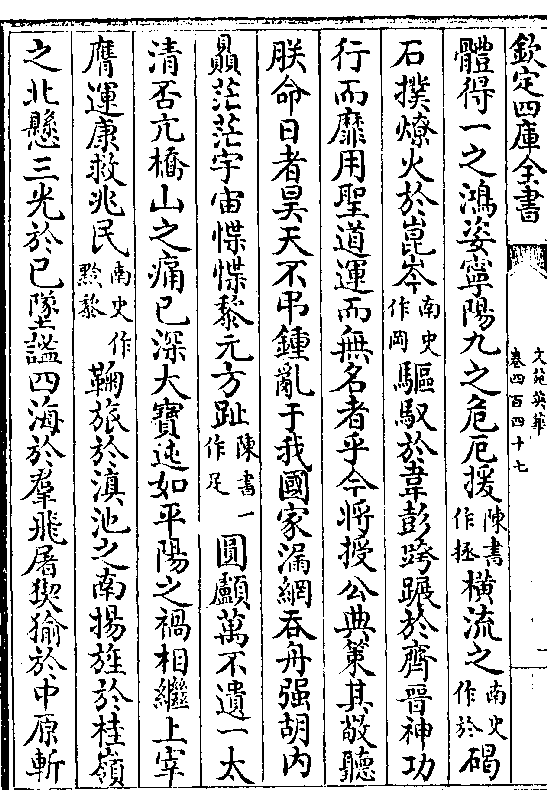 欽定四庫全書
文苑英華
卷四百四十七
體得一之鴻姿寧陽九之危厄援陳書作拯橫流之南史作於碣
石撲燎火於崑岑南史作岡驅馭於韋彭跨蹍於齊晉神功
行而靡用聖道運而無名者乎今將授公典策其敬聽
朕命日者昊天不弔鍾亂于我國家漏網吞舟强胡内
贔茫茫宇宙惵惵黎元方趾陳書作足一圓顱萬不遺一太
清否亢橋山之痛已深大寶迍如平陽之禍相繼上宰
膺運康救兆民南史作黔黎鞠旅於滇池之南揚旌於桂嶺
之北懸三光於已墜謐四海於羣飛屠猰㺄於中原斬